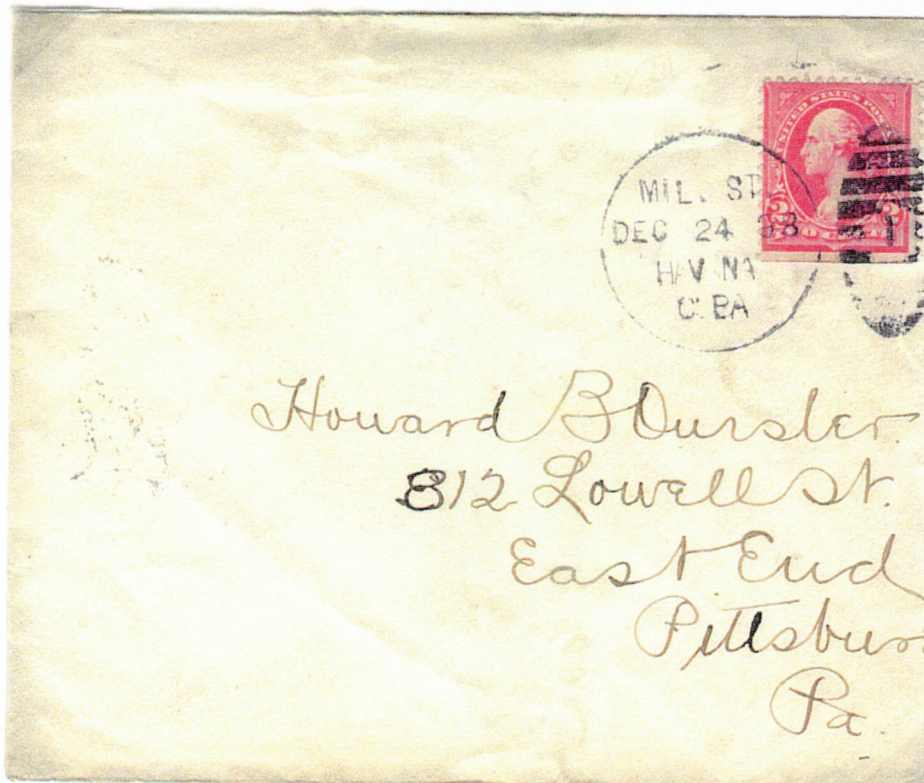 UNITED STATES POST
MIL. ST.
DEC 24 98
HAVANA
CUBA
1
Howard B Dursler.
812 Lowell St.
East End
Pittsbur
Pa.